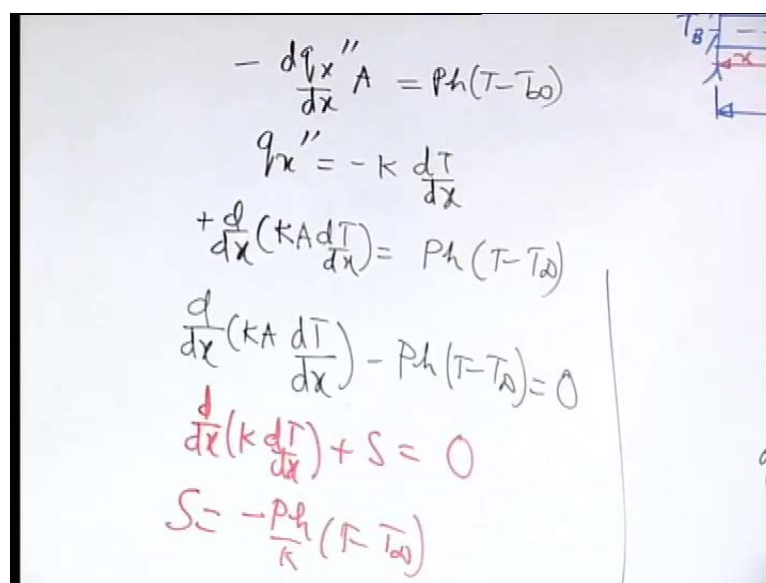 T_B
- dq_x''/dx A = Ph(T-T_∞)
x
q_x'' = -K dT/dx
+ d/dx (KA dT/dx) = Ph(T-T_∞)
d/dx (KA dT/dx) - Ph(T-T_∞) = 0
d/dx (K dT/dx) + S = 0
S = -Ph/K (T-T_∞)